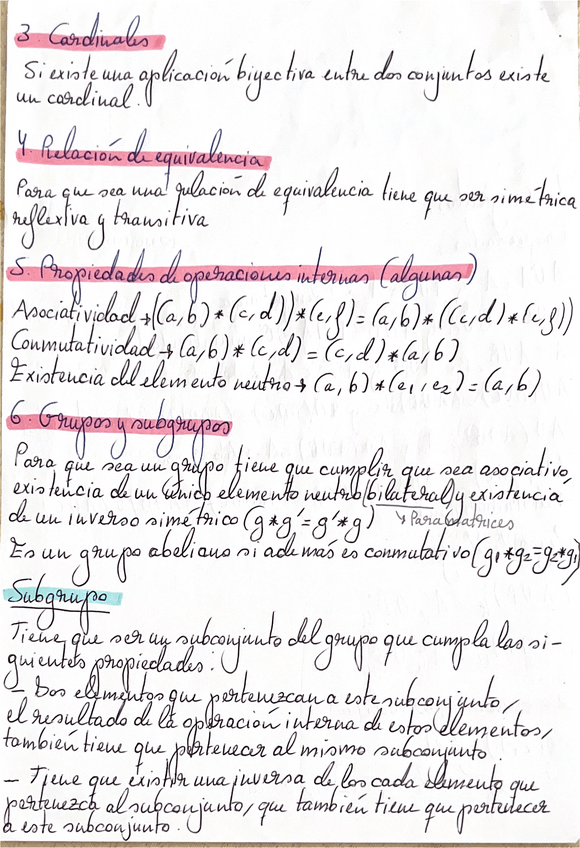 3. Cardinales
Si existe una aplicación biyectiva entre dos conjuntos existe
un cardinal.
4. Relación de equivalencia
Para que sea una relación de equivalencia tiene que ser simétrica
reflexiva y transitiva
5. Propiedades de operaciones internas (algunas)
Asociatividad → ((a,b)*(c,d))*(e,f)=(a,b)*((c,d)*(e,f))
Conmutatividad → (a,b)*(c,d)=(c,d)*(a,b)
Existencia del elemento neutro → (a,b)*(e₁,e₂)=(a,b)
6. Grupos y subgrupos
Para que sea un grupo tiene que cumplir que sea asociativo,
existencia de un único elemento neutro (bilateral) y existencia
de un inverso simétrico (g*g'=g'*g) ↘ Para matrices
Es un grupo abeliano si además es conmutativo (g₁*g₂=g₂*g₁)
Subgrupo
Tiene que ser un subconjunto del grupo que cumpla las si-
guientes propiedades:
- Dos elementos que pertenezcan a este subconjunto,
el resultado de la operación interna de estos elementos,
también tiene que pertenecer al mismo subconjunto.
- Tiene que existir una inversa de los cada elemento que
pertenezca al subconjunto, que también tiene que pertenecer
a este subconjunto.